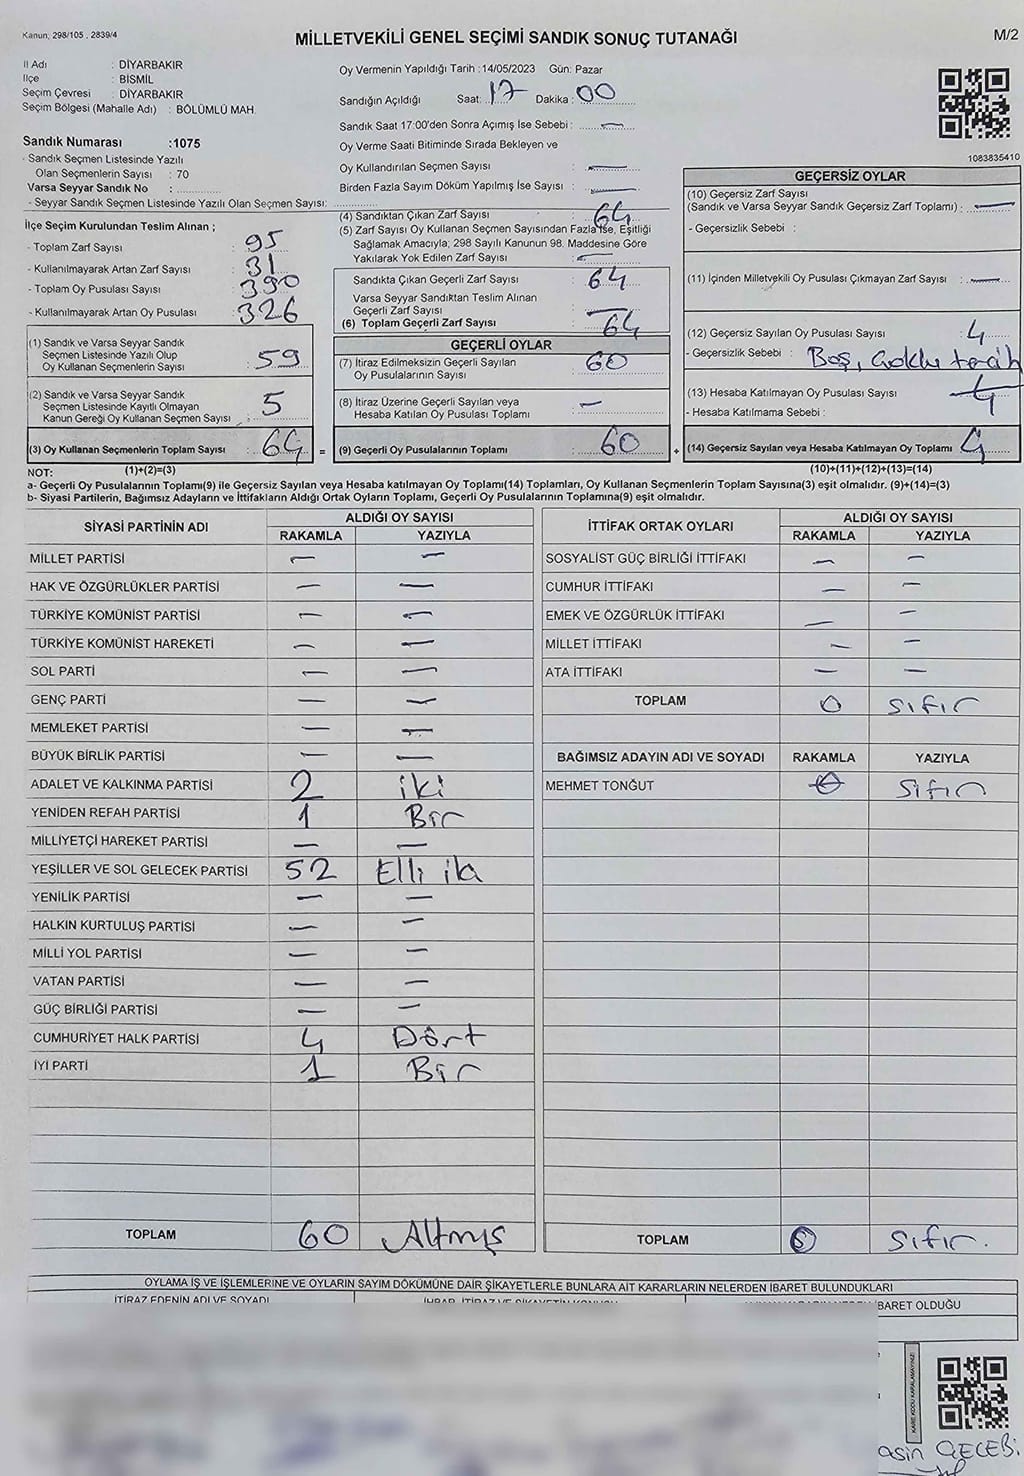 Kanun; 298/105 , 2839/4
MİLLETVEKİLİ GENEL SEÇİMİ SANDIK SONUÇ TUTANAĞI
M/2
İl Adı : DİYARBAKIR
İlçe : BİSMİL
Seçim Çevresi : DİYARBAKIR
Seçim Bölgesi (Mahalle Adı) : BÖLÜMLÜ MAH.
Sandık Numarası :1075
- Sandık Seçmen Listesinde Yazılı
Olan Seçmenlerin Sayısı : 70
Varsa Seyyar Sandık No :
- Seyyar Sandık Seçmen Listesinde Yazılı Olan Seçmen Sayısı:
Oy Vermenin Yapıldığı Tarih :14/05/2023 Gün: Pazar
Sandığın Açıldığı Saat: 17 Dakika : 00
Sandık Saat 17:00'den Sonra Açımış İse Sebebi : —
Oy Verme Saati Bitiminde Sırada Bekleyen ve
Oy Kullandırılan Seçmen Sayısı : —
Birden Fazla Sayım Döküm Yapılmış İse Sayısı : —
1083835410
İlçe Seçim Kurulundan Teslim Alınan ;
- Toplam Zarf Sayısı : 95
- Kullanılmayarak Artan Zarf Sayısı : 31
- Toplam Oy Pusulası Sayısı : 390
- Kullanılmayarak Artan Oy Pusulası : 326
(1) Sandık ve Varsa Seyyar Sandık
Seçmen Listesinde Yazılı Olup
Oy Kullanan Seçmenlerin Sayısı : 59
(2) Sandık ve Varsa Seyyar Sandık
Seçmen Listesinde Kayıtlı Olmayan
Kanun Gereği Oy Kullanan Seçmen Sayısı : 5
(3) Oy Kullanan Seçmenlerin Toplam Sayısı : 64 =
(4) Sandıktan Çıkan Zarf Sayısı : 64
(5) Zarf Sayısı Oy Kullanan Seçmen Sayısından Fazla İse, Eşitliği
Sağlamak Amacıyla; 298 Sayılı Kanunun 98. Maddesine Göre
Yakılarak Yok Edilen Zarf Sayısı : —
Sandıkta Çıkan Geçerli Zarf Sayısı : 64
Varsa Seyyar Sandıktan Teslim Alınan
Geçerli Zarf Sayısı : —
(6) Toplam Geçerli Zarf Sayısı : 64
GEÇERLİ OYLAR
(7) İtiraz Edilmeksizin Geçerli Sayılan
Oy Pusulalarının Sayısı : 60
(8) İtiraz Üzerine Geçerli Sayılan veya
Hesaba Katılan Oy Pusulası Toplamı : —
(9) Geçerli Oy Pusulalarının Toplamı : 60 +
GEÇERSİZ OYLAR
(10) Geçersiz Zarf Sayısı
(Sandık ve Varsa Seyyar Sandık Geçersiz Zarf Toplamı) : —
- Geçersizlik Sebebi :
(11) İçinden Milletvekili Oy Pusulası Çıkmayan Zarf Sayısı : —
(12) Geçersiz Sayılan Oy Pusulası Sayısı : 4
- Geçersizlik Sebebi : Boş,
(13) Hesaba Katılmayan Oy Pusulası Sayısı :
- Hesaba Katılmama Sebebi :
(14) Geçersiz Sayılan veya Hesaba Katılmayan Oy Toplamı : 4
NOT: (1)+(2)=(3)
(10)+(11)+(12)+(13)=(14)
a- Geçerli Oy Pusulalarının Toplamı(9) ile Geçersiz Sayılan veya Hesaba katılmayan Oy Toplamı(14) Toplamları, Oy Kullanan Seçmenlerin Toplam Sayısına(3) eşit olmalıdır. (9)+(14)=(3)
b- Siyasi Partilerin, Bağımsız Adayların ve İttifakların Aldığı Ortak Oyların Toplamı, Geçerli Oy Pusulalarının Toplamına(9) eşit olmalıdır.
SİYASİ PARTİNİN ADI
ALDIĞI OY SAYISI
RAKAMLA YAZIYLA
MİLLET PARTİSİ — —
HAK VE ÖZGÜRLÜKLER PARTİSİ — —
TÜRKİYE KOMÜNİST PARTİSİ — —
TÜRKİYE KOMÜNİST HAREKETİ — —
SOL PARTİ — —
GENÇ PARTİ — —
MEMLEKET PARTİSİ — —
BÜYÜK BİRLİK PARTİSİ — —
ADALET VE KALKINMA PARTİSİ 2 iki
YENİDEN REFAH PARTİSİ 1 Bir
MİLLİYETÇİ HAREKET PARTİSİ — —
YEŞİLLER VE SOL GELECEK PARTİSİ 52 Elli iki
YENİLİK PARTİSİ — —
HALKIN KURTULUŞ PARTİSİ — —
MİLLİ YOL PARTİSİ — —
VATAN PARTİSİ — —
GÜÇ BİRLİĞİ PARTİSİ — —
CUMHURİYET HALK PARTİSİ 4 Dört
İYİ PARTİ 1 Bir
TOPLAM 60 Altmış
İTTİFAK ORTAK OYLARI
ALDIĞI OY SAYISI
RAKAMLA YAZIYLA
SOSYALİST GÜÇ BİRLİĞİ İTTİFAKI — —
CUMHUR İTTİFAKI — —
EMEK VE ÖZGÜRLÜK İTTİFAKI — —
MİLLET İTTİFAKI — —
ATA İTTİFAKI — —
TOPLAM 0 sıfır
BAĞIMSIZ ADAYIN ADI VE SOYADI RAKAMLA YAZIYLA
MEHMET TONĞUT 0 sıfır
TOPLAM sıfır.
OYLAMA İŞ VE İŞLEMLERİNE VE OYLARIN SAYIM DÖKÜMÜNE DAİR ŞİKAYETLERLE BUNLARA AİT KARARLARIN NELERDEN İBARET BULUNDUKLARI
İTİRAZ EDENİN ADI VE SOYADI
İBARET OLDUĞU
KARE KODU KARALAMAYINIZ!